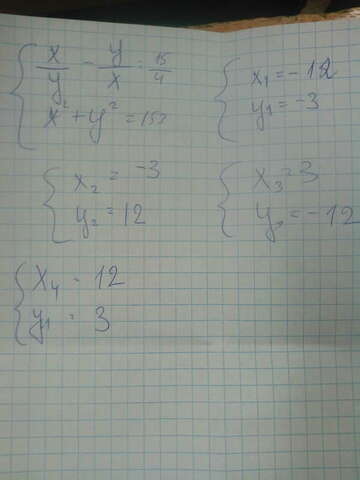 x/y - y/x = 15/4
x² + y² = 153
x₁ = -12
y₁ = -3
x₂ = -3
y₂ = 12
x₃ = 3
y₃ = -12
x₄ = 12
y₁ = 3